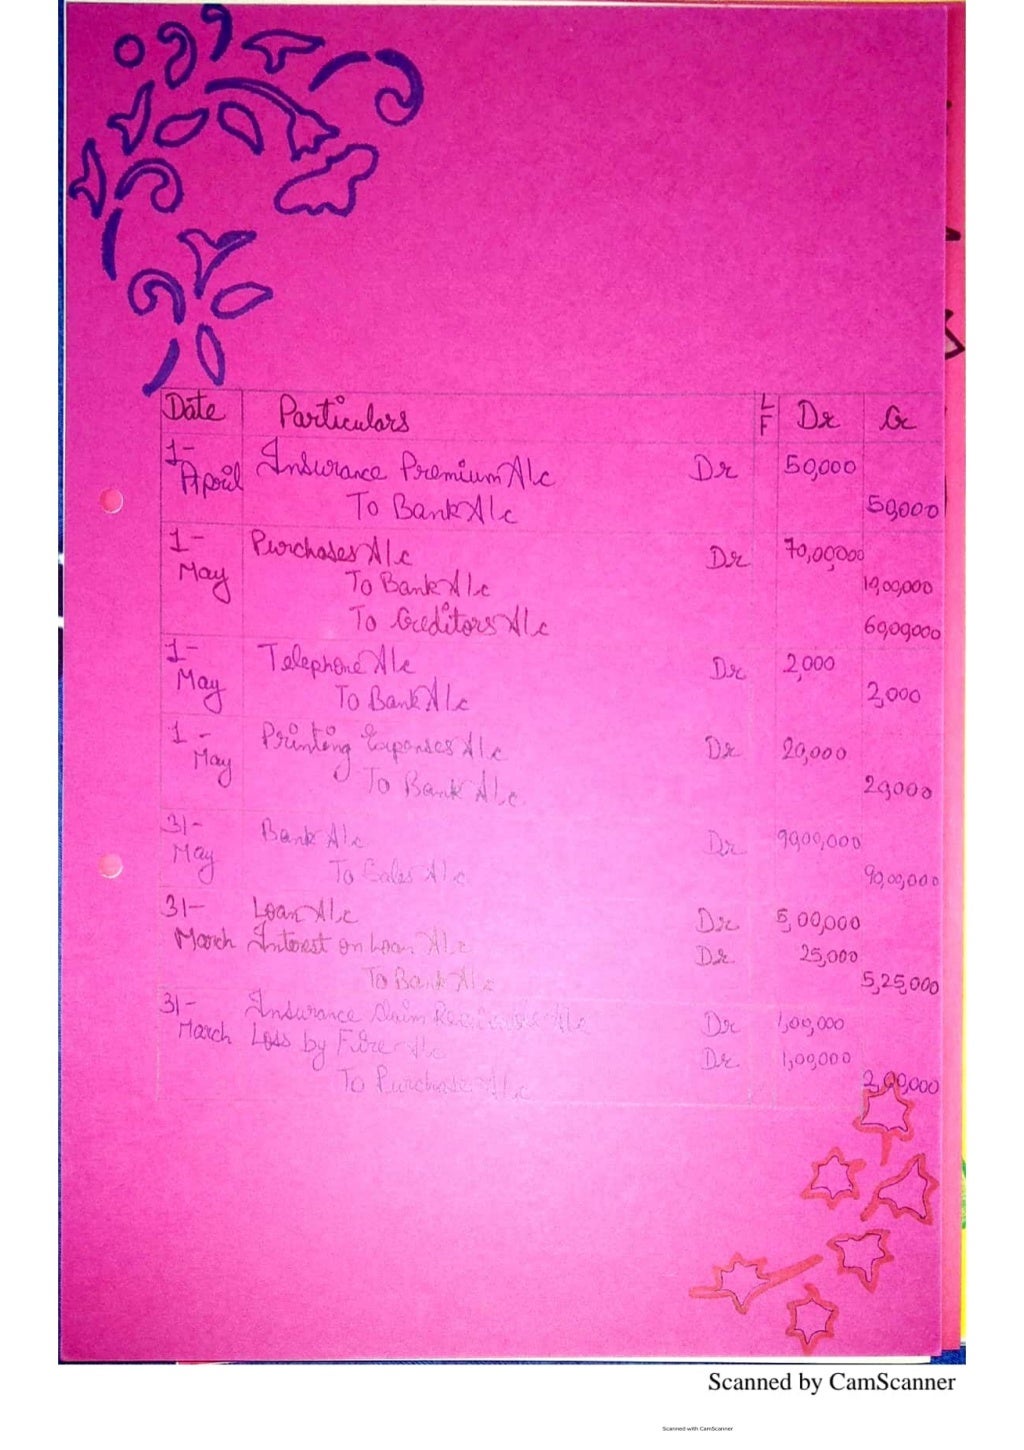 Date Particulars LF Dr Cr
1-April Insurance Premium A/c Dr 50,000
To Bank A/c 50,000
1-May Purchases A/c Dr 70,00,000
To Bank A/c 10,00,000
To Creditors A/c 60,00,000
1-May Telephone A/c Dr 2,000
To Bank A/c 2,000
1-May Printing Expenses A/c Dr 20,000
To Bank A/c 20,000
31-May Bank A/c Dr 90,00,000
To Sales A/c 90,00,000
31-March Loan A/c Dr 5,00,000
Interest on Loan A/c Dr 25,000
To Bank A/c 5,25,000
31-March Insurance Claim A/c Dr 1,00,000
Loss by Fire A/c Dr 1,00,000
To Purchase A/c 2,00,000
Scanned by CamScanner
Scanned with CamScanner